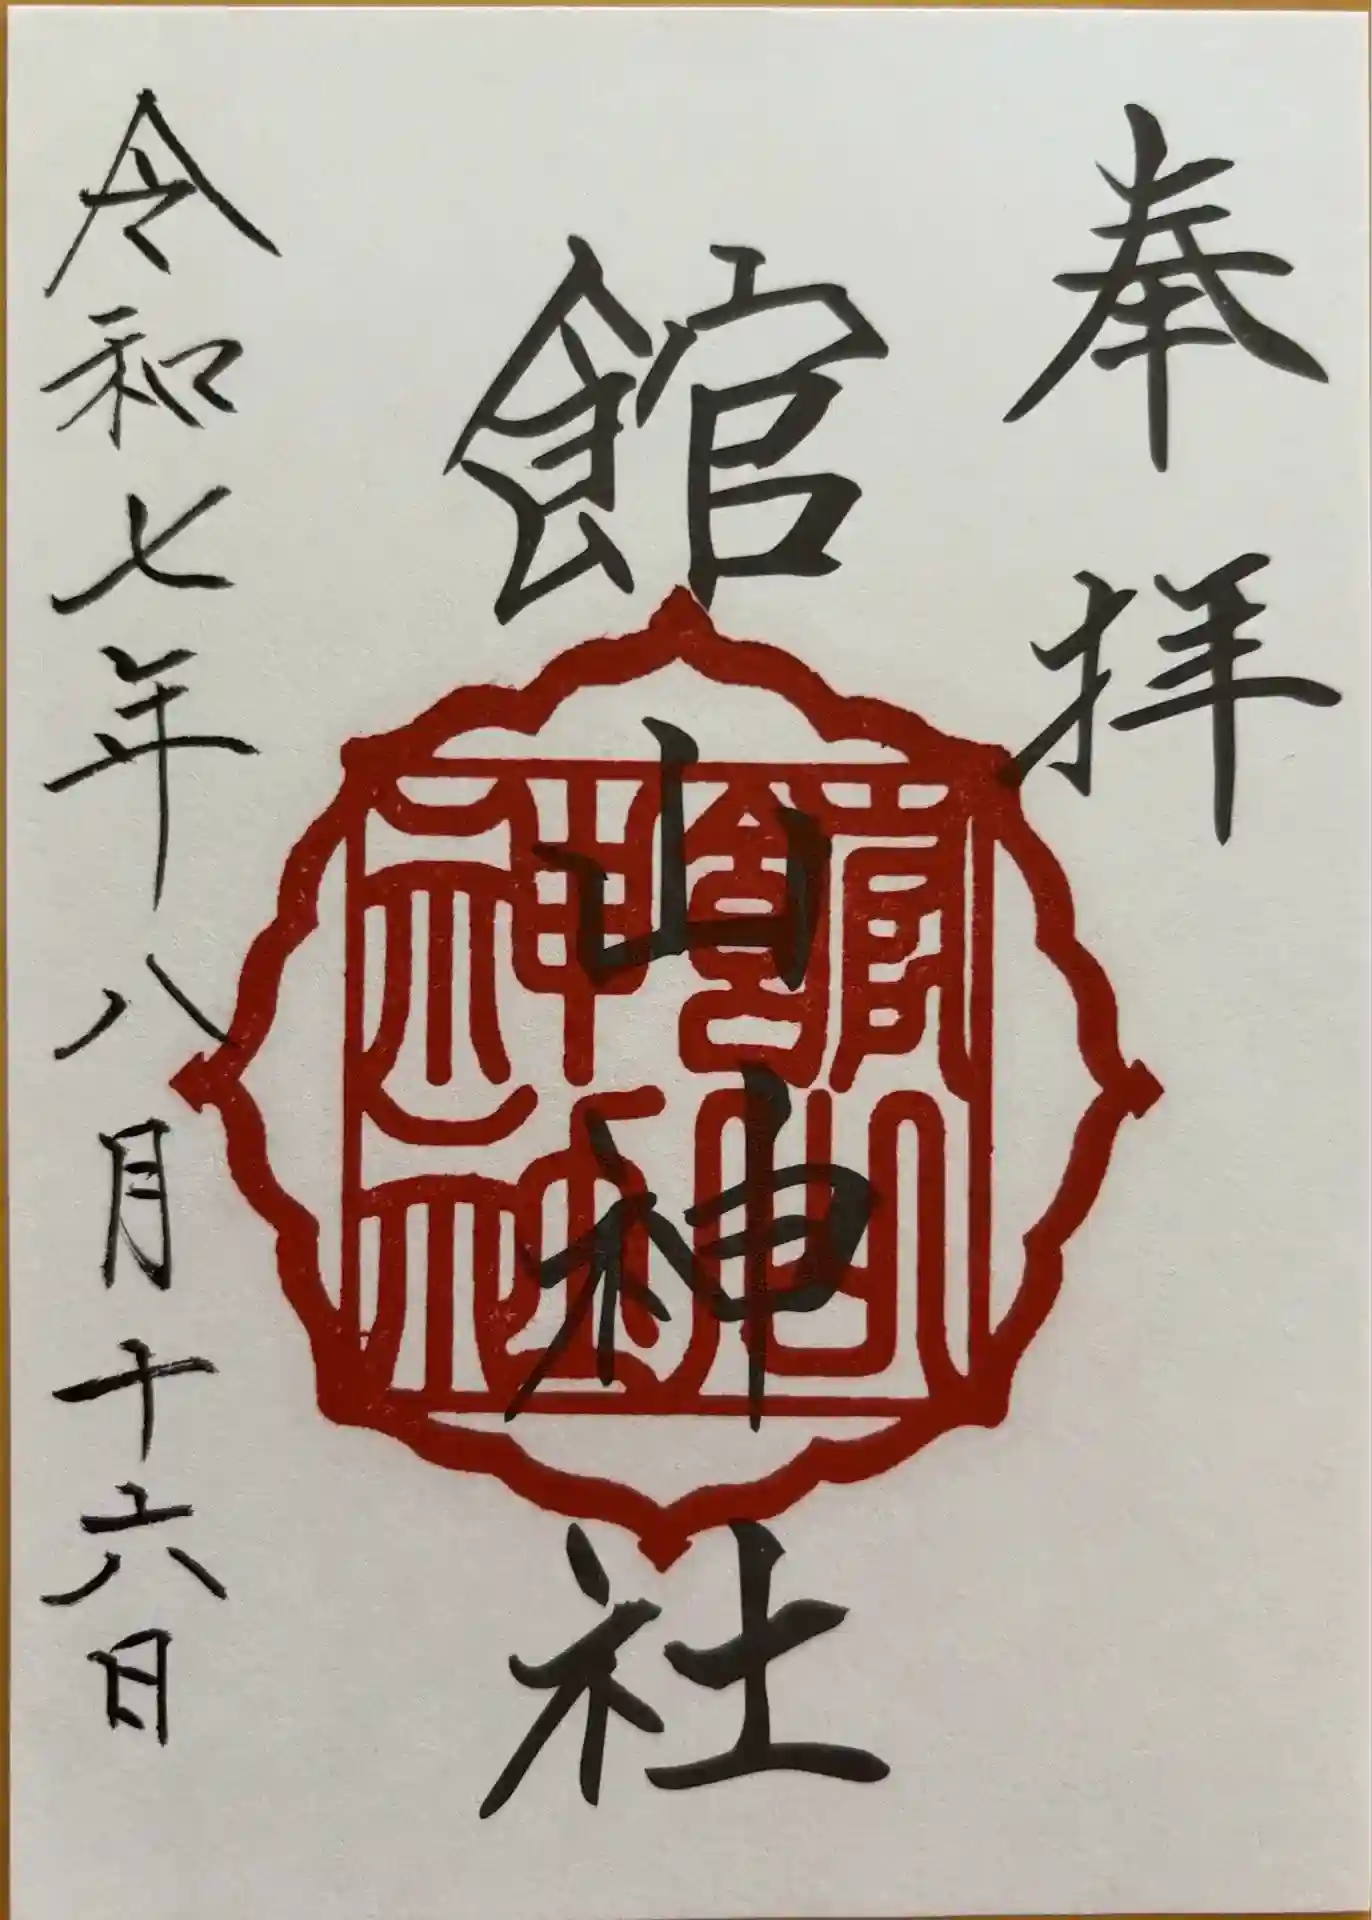 奉拝
館山神社
館山神社
令和七年八月十六日